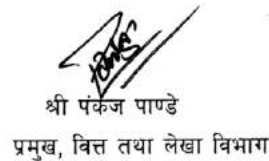 श्री पंकज पाण्डे
प्रमुख, वित्त तथा लेखा विभाग